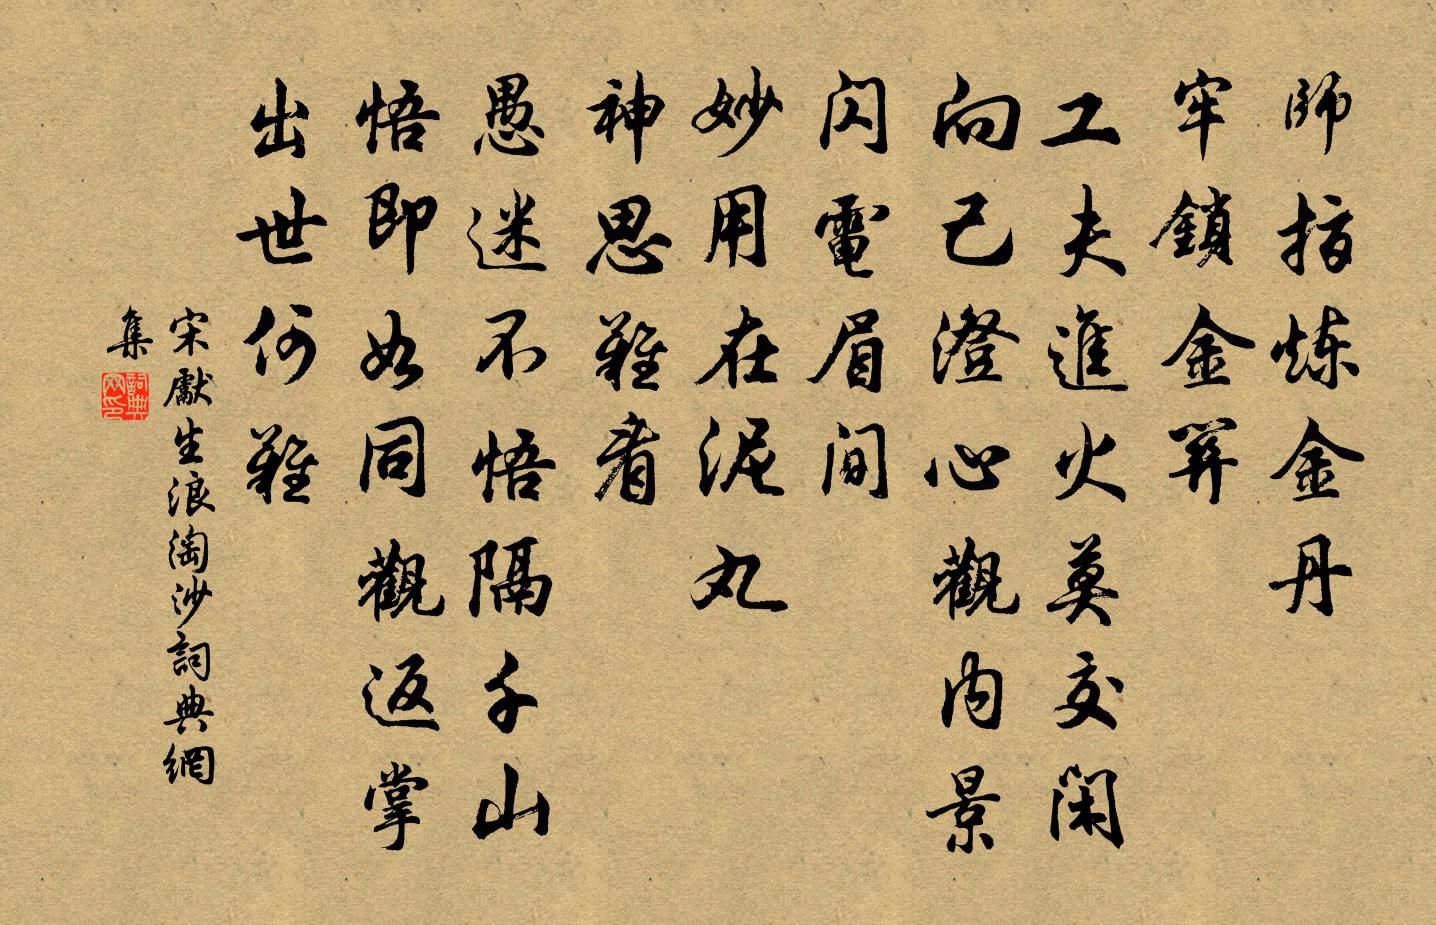 師指炼金丹
牢鎖金關
工夫進火莫交閑
向己澄心觀内景
閃電眉间
妙用在泥丸
神思難看
愚迷不悟隔千山
悟即如同觀返掌
出世何難
宋獻生浪淘沙詞典網
集
詞典網印